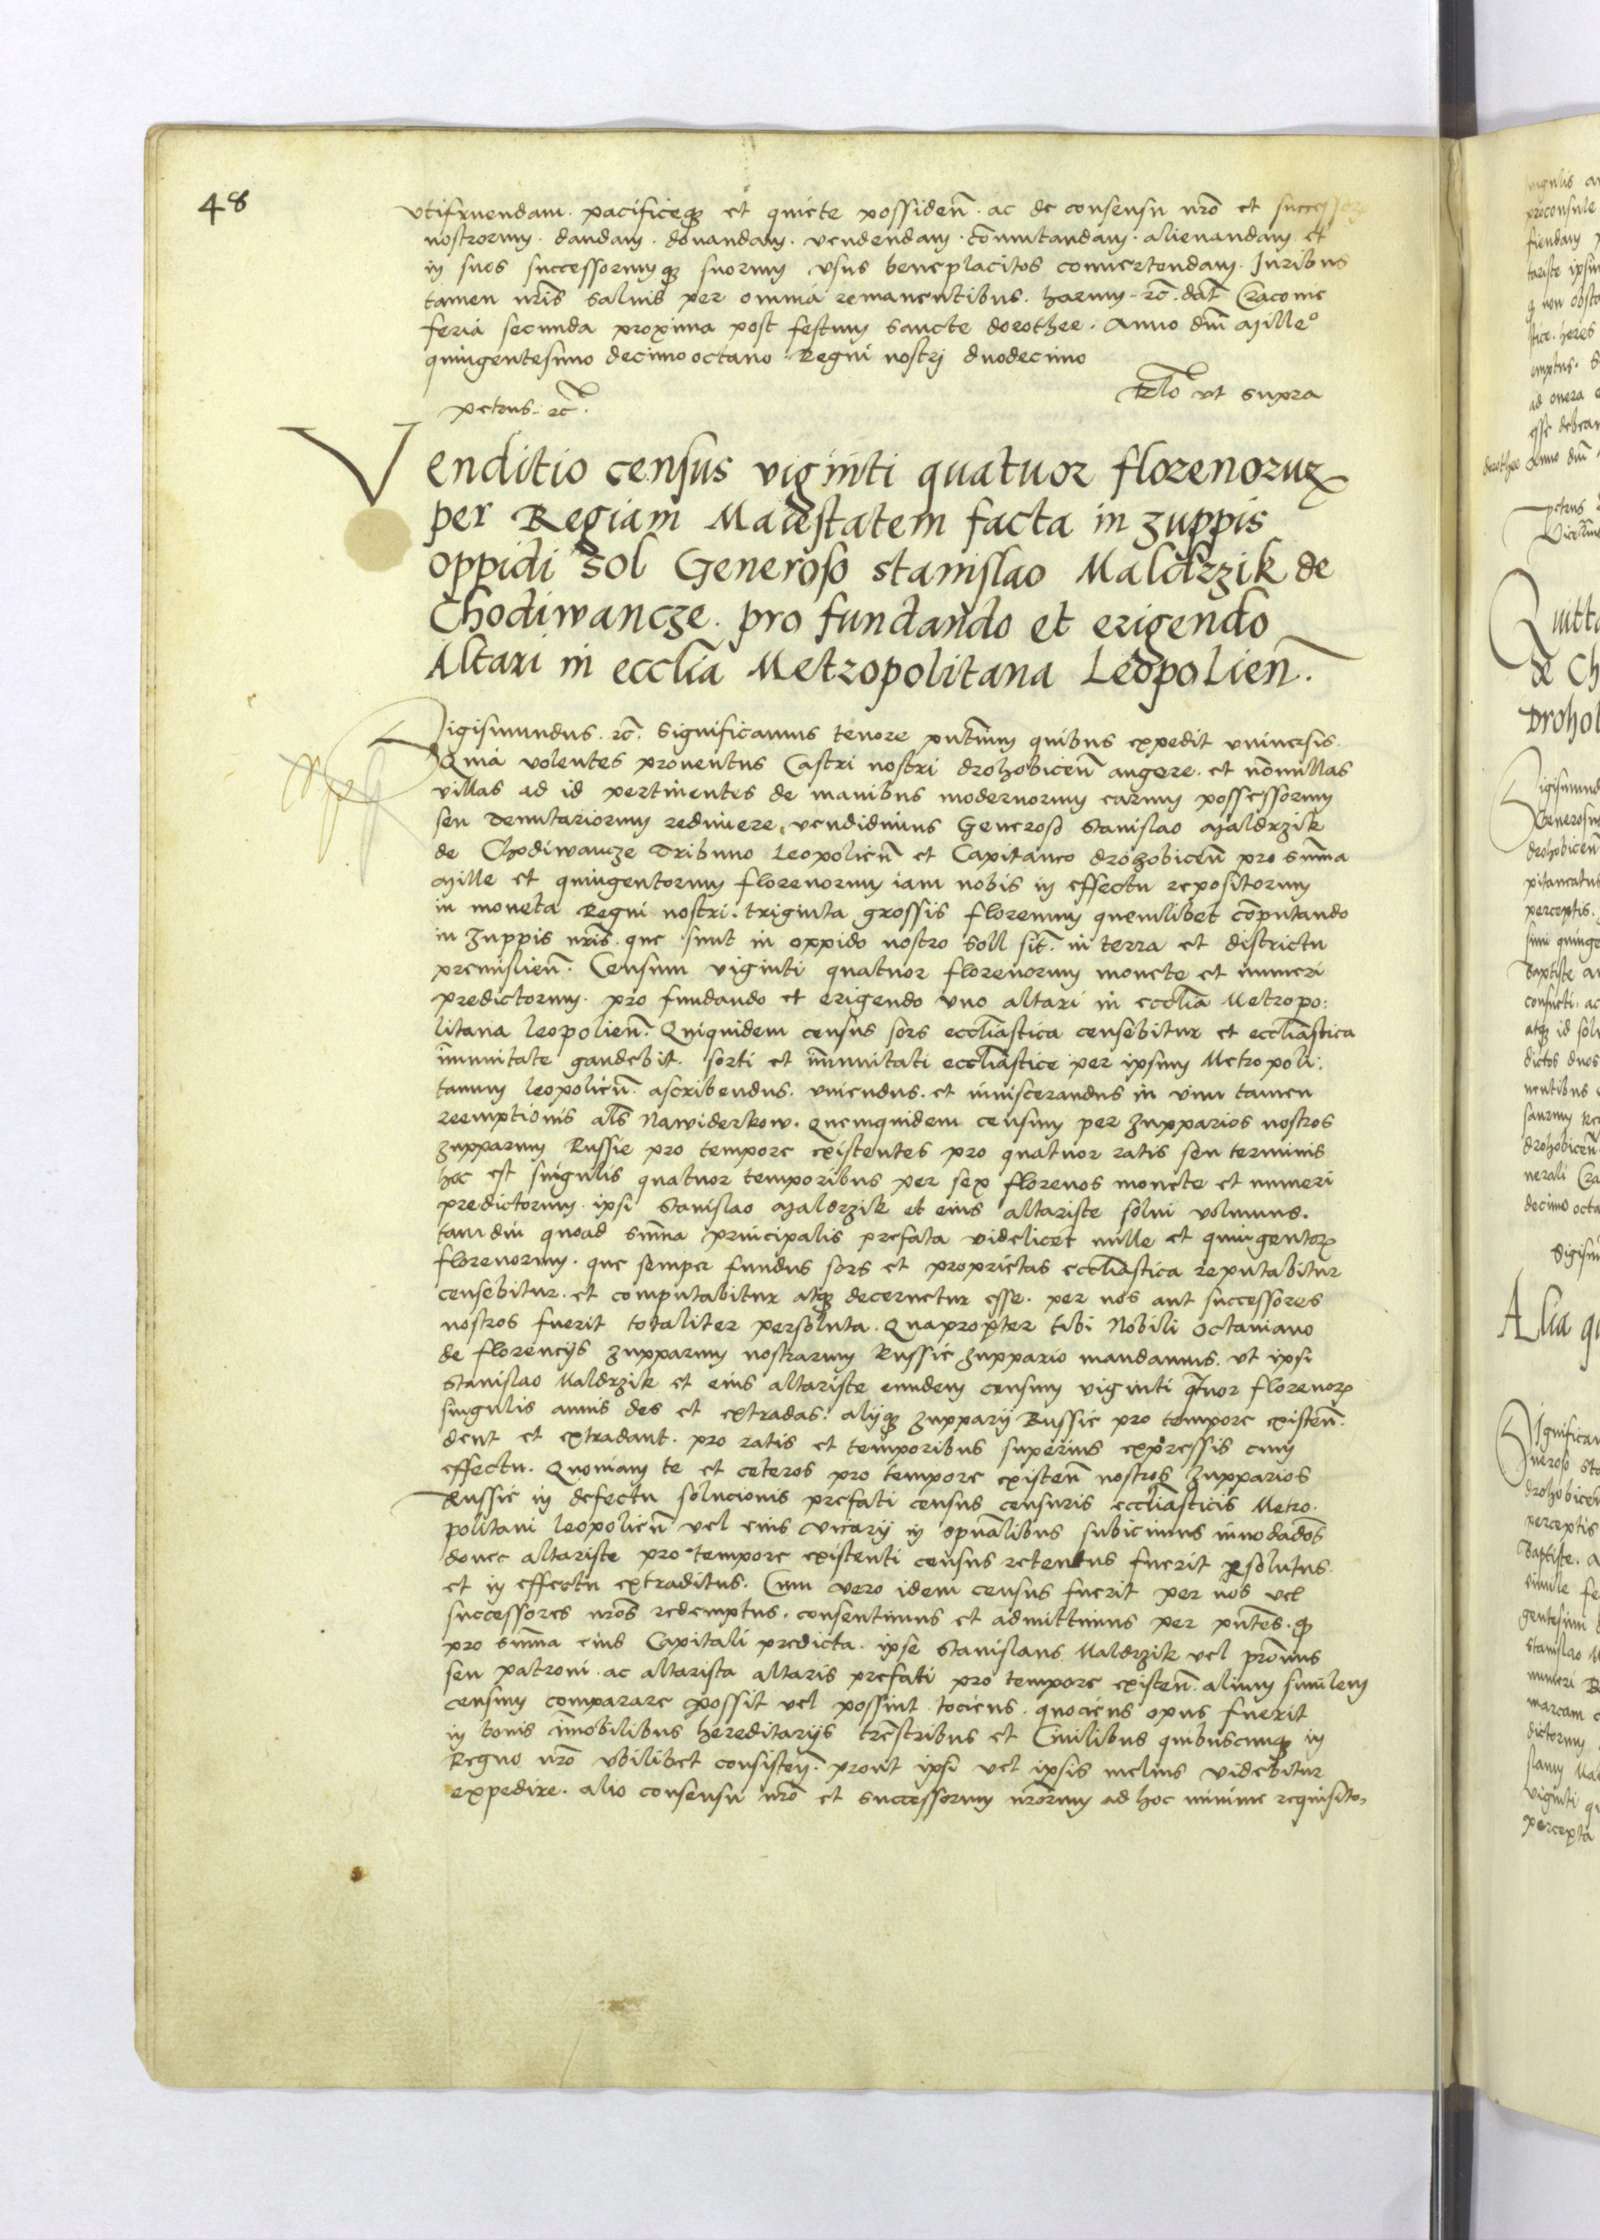 48
vtifruendam. pacificeq3 et quiete possiden̄. ac de consensu nrō et
nostrorum. dandam. donandam. vendendam. cōmutandam. alienandam et
in suos successorumq3 suorum vsus beneplacitos conuertendam. Iuribus
tamen nrīs saluis per omnia remanentibus. harum. rc̄. dat̄ Cracouie
feria secunda proxima post festum sancte dorothee. Anno dnī Mille°
quingentesimo decimooctauo. Regni nostri duodecimo
Petrus. rc̄.
Rlō vt supra
Venditio census viginti quatuor florenoruꝝ
per Regiam Maiestatem facta in zuppis
oppidi Sol Generoso stanislao Maldrzik de
Chodiwancze. pro fundando et erigendo
Altari in ecclīa Metropolitana Leopolien̄.
Sigismundus. rc̄. Significamus tenore pntīum quibus expedit vniuersis.
Quia volentes prouentus Castri nostri drohobicen̄ augere. et nōnullas
villas ad id pertinentes de manibus modernorum earum possessorum
seu Tenutariorum redimere, vendidimus Generoso Stanislao Maldrzik
de Chodiwancze Tribuno Leopolien̄ et Capitaneo drohobicen̄ pro sum̄a
Mille et quingentorum florenorum iam nobis in effectu repositorum
in moneta Regni nostri. triginta grossis florenum quemlibet cōputando
in zuppis nrīs. que sunt in oppido nostro Soll sit̄. in terra et districtu
premislien̄. Censum viginti quatuor florenorum monete et numeri
predictorum. pro fundando et erigendo vno altari in ecclīa Metropo:
litana leopolien̄. Quiquidem census sors eccliāstica censebitur et eccliāstica
īmunitate gaudebit. sorti et īmunitati eccliāstice per ipsum Metropoli:
tanum leopolien̄. ascribendus. vniendus. et inuiscerandus in vim tamen
reemptionis als̄ Nawiderkow. Quemquidem censum per zupparios nostros
zupparum Russie pro tempore existentes pro quatuor ratis seu terminis
hoc est singulis quatuor temporibus per sex florenos monete et numeri
predictorum. ipsi Stanislao Maldrzik et eius altariste solui volumus.
tamdiu quoad sum̄a principalis prefata videlicet mille et quingentoꝝ
florenorum. que semper fundus sors et proprietas eccliāstica reputabitur
censebitur. et computabitur atq3 decernetur esse. per nos aut successores
nostros fuerit totaliter persoluta. Quapropter tibi Nobili Octauiano
de florencijs zupparum nostrarum Russie zuppario mandamus. vt ipsi
Stanislao Maldrzik et eius altariste eundem censum viginti qtuor florenoꝝ
singulis annis des et extradas. alijq3 zupparij Russie pro tempore existen̄.
dent et extradant. pro ratis et temporibus superius expressis cum
effectu. Quoniam te et ceteros pro tempore existen̄ nostros zupparios
Russie in defectu solucionis prefati census censuris eccliāsticis Metro.
politani leopolien̄ vel eius vicarij in spuālibus subicimus innodādos
donec altariste pro tempore existenti census retentus fuerit ꝑsolutus.
et in effectu extraditus. Cum vero idem census fuerit per nos vel
successores nrōs redemptus. consentimus et admittimus per pn̄tes. q3
pro sum̄a eius Capitali predicta. ipse Stanislaus Maldrzik vel
seu patroni. ac altarista altaris prefati pro tempore existen̄. alium similem
censum comparare possit vel possint. tociens. quociens opus fuerit
in bonis īmobilibus hereditarijs trēstribus et Ciuilibus quibuscunq3 in
Regno nrō vbilibet consisten̄. prout ipsi vel ipsis melius videbitur
expedire. alio consensu nrō et successorum nrōrum ad hoc minime requisito,